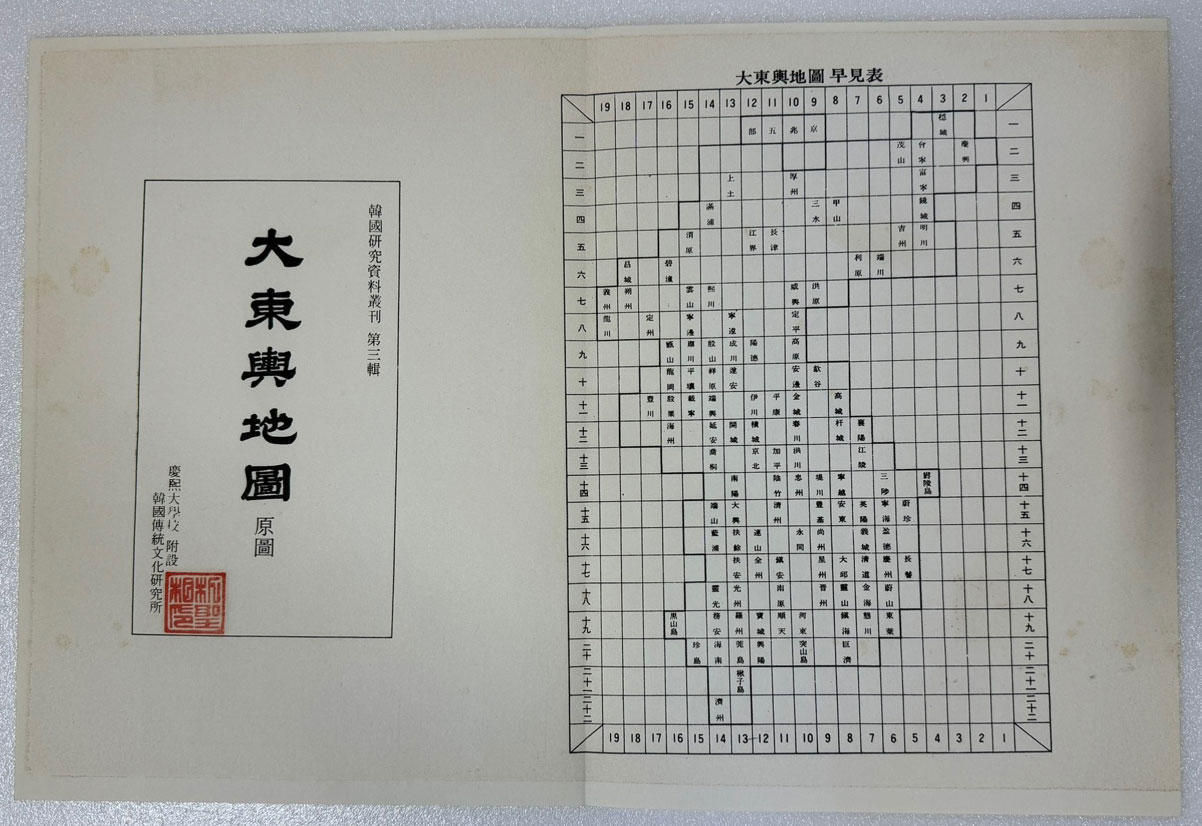 韓國研究資料叢刊 第三輯
大東輿地圖 原圖
慶熙大學校 附設
韓國傳統文化研究所
大東輿地圖 早見表
19 18 17 16 15 14 13 12 11 10 9 8 7 6 5 4 3 2 1
一 部 五 兆 京 穩城 一
二 茂山 會寧 慶興 二
三 上土 厚州 富寧 三
四 滿浦 三水 甲山 鏡城 四
五 渭原 江界 長津 吉州 明川 五
六 昌城 碧潼 利原 端川 六
七 義州 朔州 雲山 熙川 咸興 洪原 七
八 龍川 定州 寧邊 寧遠 定平 八
九 甑山 肅川 殷山 成川 陽德 高原 九
十 龍岡 平壤 祥原 遂安 安邊 歙谷 十
十一 豊川 殷栗 載寧 瑞興 伊川 平康 金城 高城 十一
十二 海州 延安 開城 積城 春川 杆城 襄陽 十二
十三 喬桐 京北 加平 洪川 江陵 十三
十四 南陽 陰竹 忠州 堤川 寧越 三陟 鬱陵島 十四
十五 瑞山 大興 清州 豊基 安東 英陽 寧海 蔚珍 十五
十六 藍浦 扶餘 連山 永同 尚州 義城 盈德 十六
十七 扶安 全州 鎭安 星州 大邱 清道 慶州 長鬐 十七
十八 靈光 光州 南原 晋州 靈山 金海 蔚山 十八
十九 黑山島 務安 羅州 寶城 順天 河東 鎭海 熊川 東萊 十九
二十 珍島 海南 莞島 興陽 突山島 巨濟 二十
二十一 楸子島 二十一
二十二 濟州 二十二
19 18 17 16 15 14 13 12 11 10 9 8 7 6 5 4 3 2 1